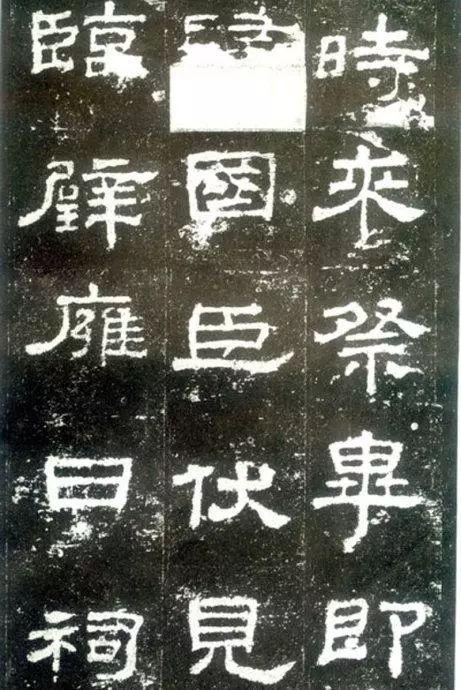 時來祭畢即
國臣伏見
臨璧雍日祠